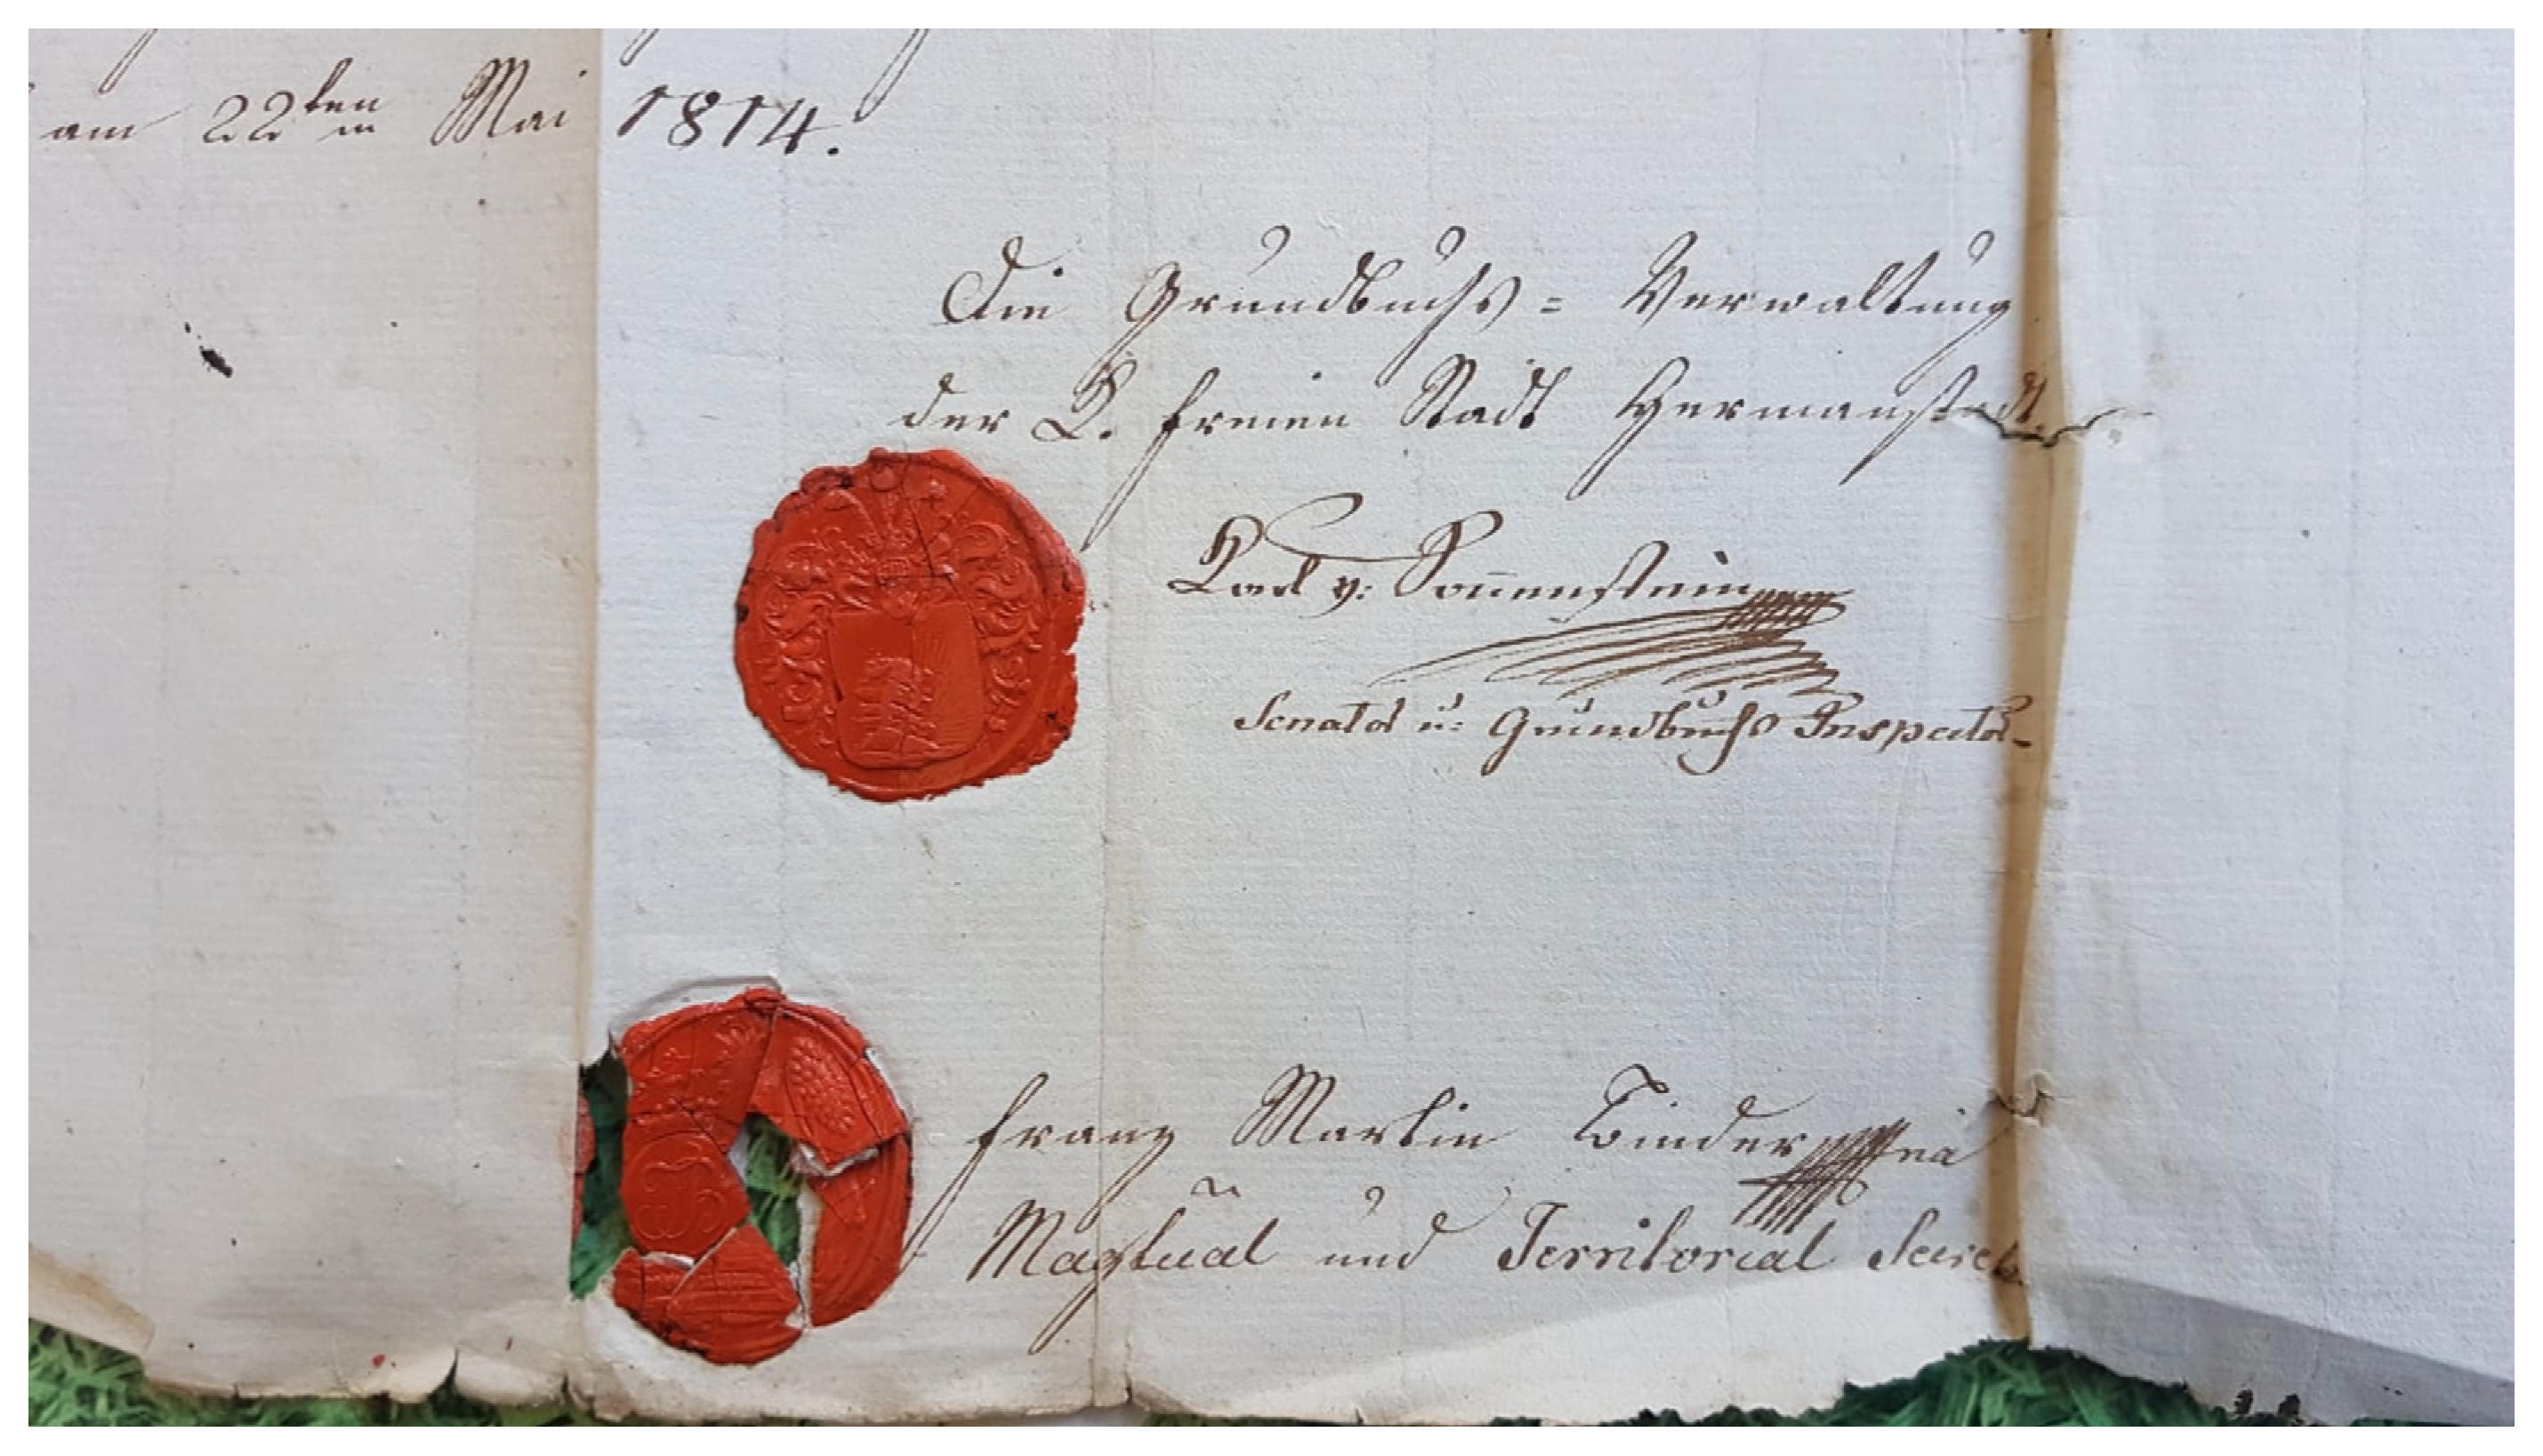 am 22ten Mai 1814.
Die Grundbuchs = Verwaltung
der K. freien Stadt Hermanstadt.
Karl v: Sonnenstein
Senator u: Grundbuchs Inspector
Franz Martin Binder
Magtual und Territorial Secret.